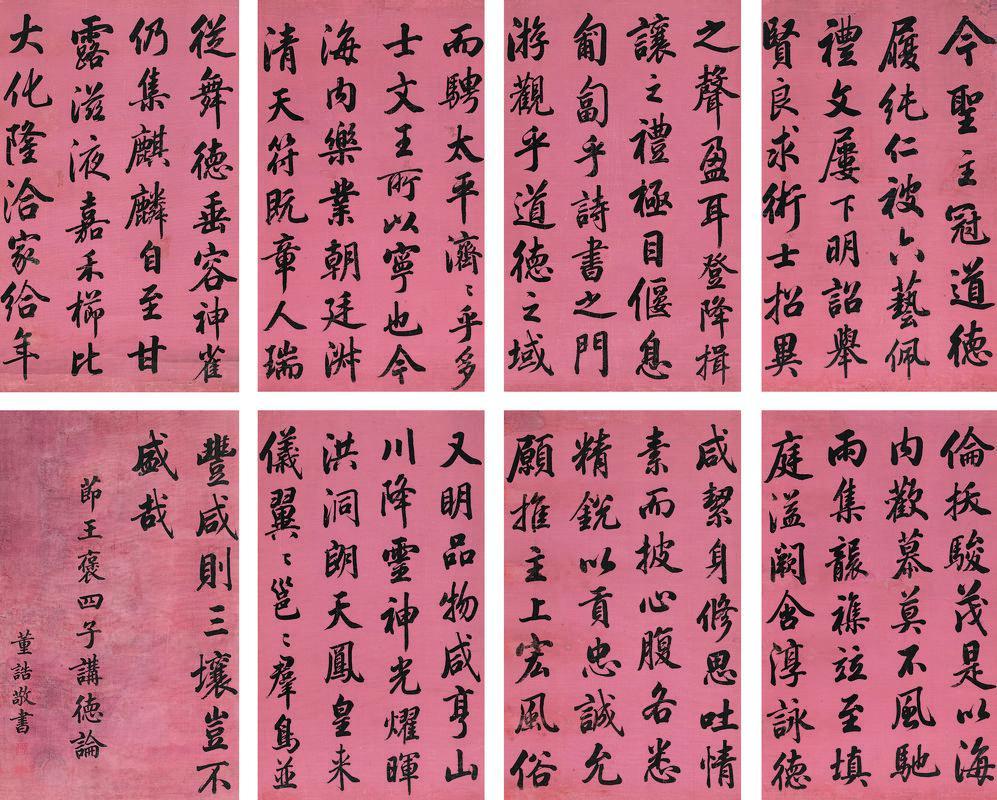 今聖主冠道德
履純仁被六藝佩
禮文屢下明詔舉
賢良求術士招異
倫拔駿茂是以海
内歡慕莫不風馳
雨集襲襍竝至填
庭溢闕含淳詠德
之聲盈耳登降揖
讓之禮極目偃息
匍匐乎詩書之門
游觀乎道德之域
咸絜身修思吐情
素而披心腹各悉
精銳以貢忠誠允
願推主上宏風俗
而騁太平濟〻乎多
士文王所以寧也今
海内樂業朝廷淑
清天符既章人瑞
又明品物咸亨山
川降靈神光燿暉
洪洞朗天鳳皇来
儀翼〻邕〻羣鳥並
從舞德垂容神雀
仍集麒麟自至甘
露滋液嘉禾櫛比
大化隆洽家給年
豐咸則三壤豈不
盛哉
節王褒四子講德論
董誥敬書